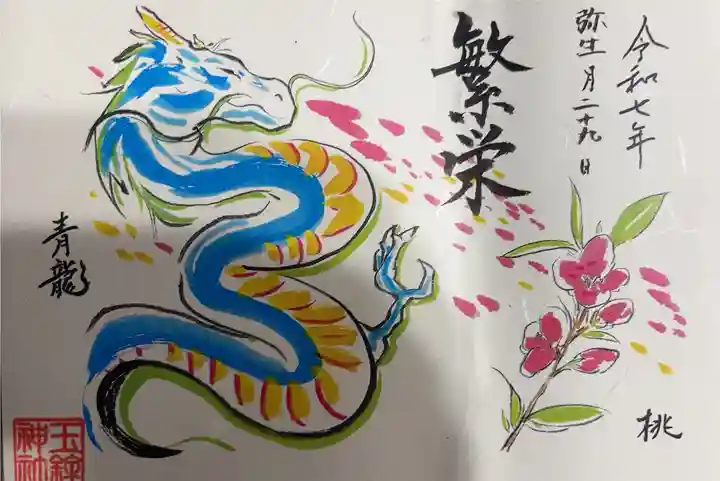 令和七年
弥生月二十九日
繁栄
桃
青龍
玉鉾
神社